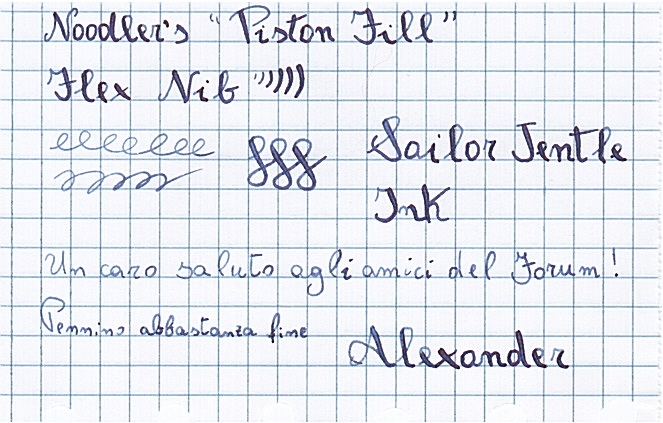 Noodler's "Piston Fill"
Flex Nib
Sailor Jentle
Ink
Un caro saluto agli amici del Forum!
Pennino abbastanza fine
Alexander